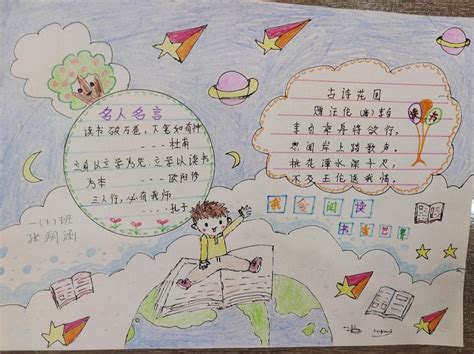 名人名言
读书破万卷，下笔如有神
---- 杜甫
立身以立学为先，立学以读书
为本 ---- 欧阳修
三人行，必有我师
---- 孔子
古诗花园
赠汪伦（唐）李白
李白乘舟将欲行，
忽闻岸上踏歌声。
桃花潭水深千尺，
不及汪伦送我情。
我会阅读
书香世界